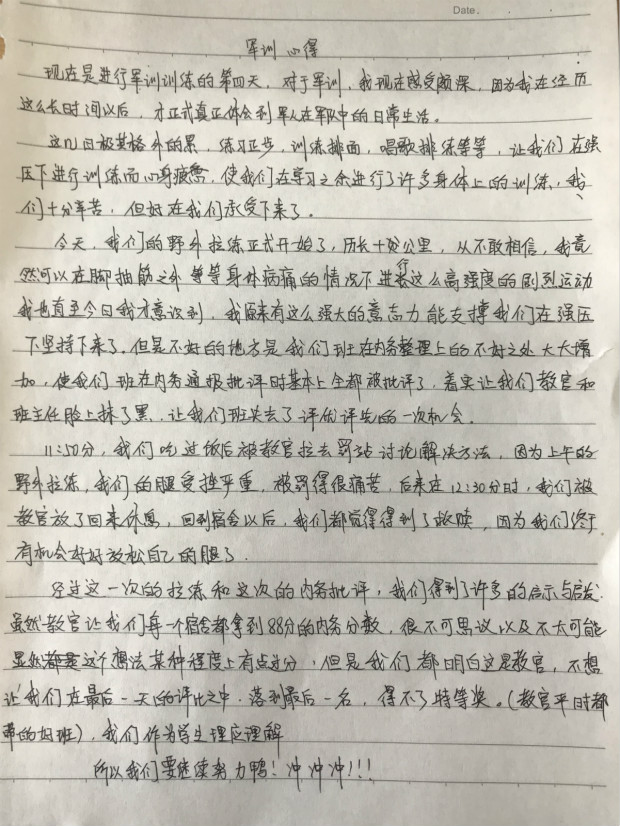 Date.
军训 心得
现在是进行军训训练的第四天，对于军训，我现在感受颇深，因为我在经历
这么长时间以后，才正式真正体会到军人在军队中的日常生活。
这几日极其格外的累，练习正步，训练排面，唱歌排练等等，让我们在强
压下进行训练而心身疲惫，使我们在学习之余进行了许多身体上的训练，我
们十分辛苦，但好在我们承受下来了。
今天，我们的野外拉练正式开始了，历长十公里，从不敢相信，我竟
然可以在脚抽筋之外等等身体病痛的情况下进行这么高强度的剧烈运动
我也直至今日我才意识到，我原来有这么强大的意志力能支撑我们在强压
下坚持下来了。但是不好的地方是我们班在内务整理上的不好之处大大增
加，使我们班在内务通报批评时基本上全都被批评了，着实让我们教官和
班主任脸上抹了黑，让我们班失去了评优评先的一次机会。
11:50分，我们吃过饭后被教官拉去罚站讨论解决方法，因为上午的
野外拉练，我们的腿受挫严重，被罚得很痛苦，后来在12:30分时，我们被
教官放了回来休息，回到宿舍以后，我们都觉得得到了救赎，因为我们终于
有机会好好放松自己的腿了.
经过这一次的拉练和这次的内务批评，我们得到了许多的启示与启发.
虽然教官让我们每一个宿舍都拿到88分的内务分数，很不可思议以及不太可能
显然这个想法某种程度上有点过分，但是我们都明白这是教官，不想
让我们在最后一天的评比之中.落到最后一名，得不了特等奖。(教官平时都
带的好班)，我们作为学生理应理解
所以我们要继续努力鸭！冲冲冲!!!